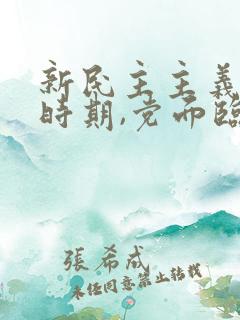 新民主主義
時期,党而臨
張希成
未任同意禁止转载